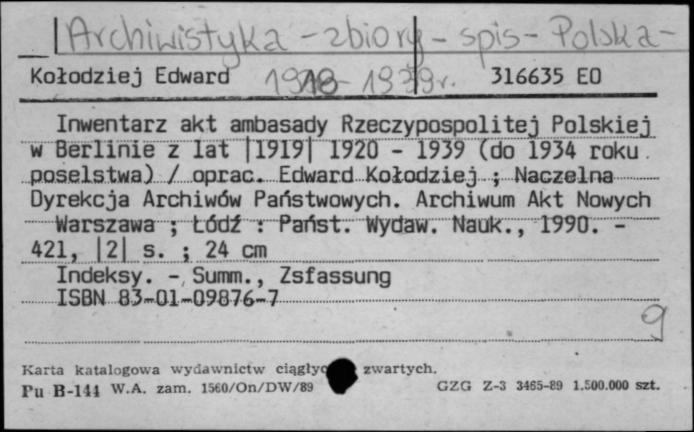 Archiwistyka - zbiory - spis - Polska -
Kołodziej Edward 1918-1939r. 316635 EO
Inwentarz akt ambasady Rzeczypospolitej Polskiej
w Berlinie z lat |1919| 1920 - 1939 (do 1934 roku
poselstwa) / oprac. Edward Kołodziej ; Naczelna
Dyrekcja Archiwów Państwowych. Archiwum Akt Nowych
Warszawa ; Łódź : Państ. Wydaw. Nauk., 1990. -
421, |2| s. ; 24 cm
Indeksy. - Summ., Zsfassung
ISBN 83-01-09876-7
9
Karta katalogowa wydawnictw zwartych.
Pu B-144 W.A. zam. 1560/On/DW/89 GZG Z-3 3465-89 1.500.000 szt.